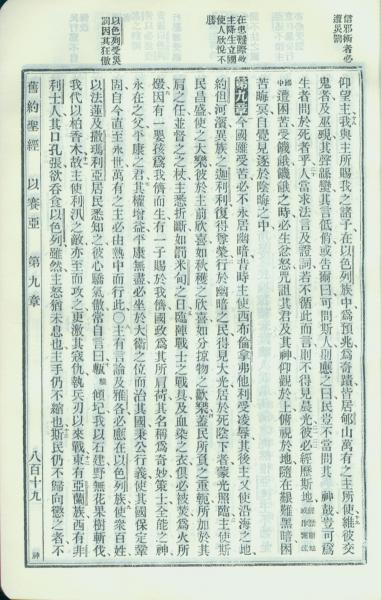 信邪術者必
遭災罰
仰望主我與主所賜我之諸子在以色列族中爲預兆爲奇蹟皆居郇山萬有之主所使維彼交
鬼者及巫覡其聲綿蠻其言低俏或告爾曰可問斯人則應之曰民豈不當問其 神哉豈可爲
生者問於死者乎人當求法言及證詞若不循此而言則不得見晨光彼必經歷斯地
遭困苦受饑餓饑餓之時必生忿怒咒詛其君及其神仰觀於上俯視於地隨在艱難黑暗困
苦晦冥自覺見逐於陰晦之中
在患難際敵
主降生立國
使人欣悅不
勝
第九章 國雖受苦必不永居幽暗昔時主使西布倫拿弗他利受凌辱其後主又使沿海之地
約但河濱異族之迦利利復得尊榮行於幽暗之民得見大光居於死陰下者蒙光照臨主使斯
民昌盛使之大樂彼於主前欣喜如秋穫之欣喜如分掠物之歡樂蓋民所負之重軛所加於其
肩之任並督之之杖主悉折斷如昔米甸之日臨陣戰士之戰具及血染之衣俱必被焚爲火所
燬因有一嬰孩爲我儕而生有一子賜於我儕國政爲其所肩荷其名稱爲奇妙策士全能之神
永在之父平康之君其權增益平康無盡必坐於大衛之位而治其國秉公行義使其國保定鞏
固自今直至永世萬有之主必由熱中而行此○主有言論及雅各必應在以色列族使衆百姓
以色列受災
罰因其狂傲
以法蓮及撒瑪利亞居民悉知之彼心驕氣傲常自言曰甎 傾圮我以石建野無花果樹斬伐
我代以柏香木故主使利汛之敵亦至而攻之更激其寇仇執兵刃以來戰東有亞蘭族西有非
利士人其口孔張欲吞食以色列雖然主怒猶未息也主手仍不縮也斯民仍不歸向懲之者不
舊約聖經 以賽亞 第九章 八百十九 神